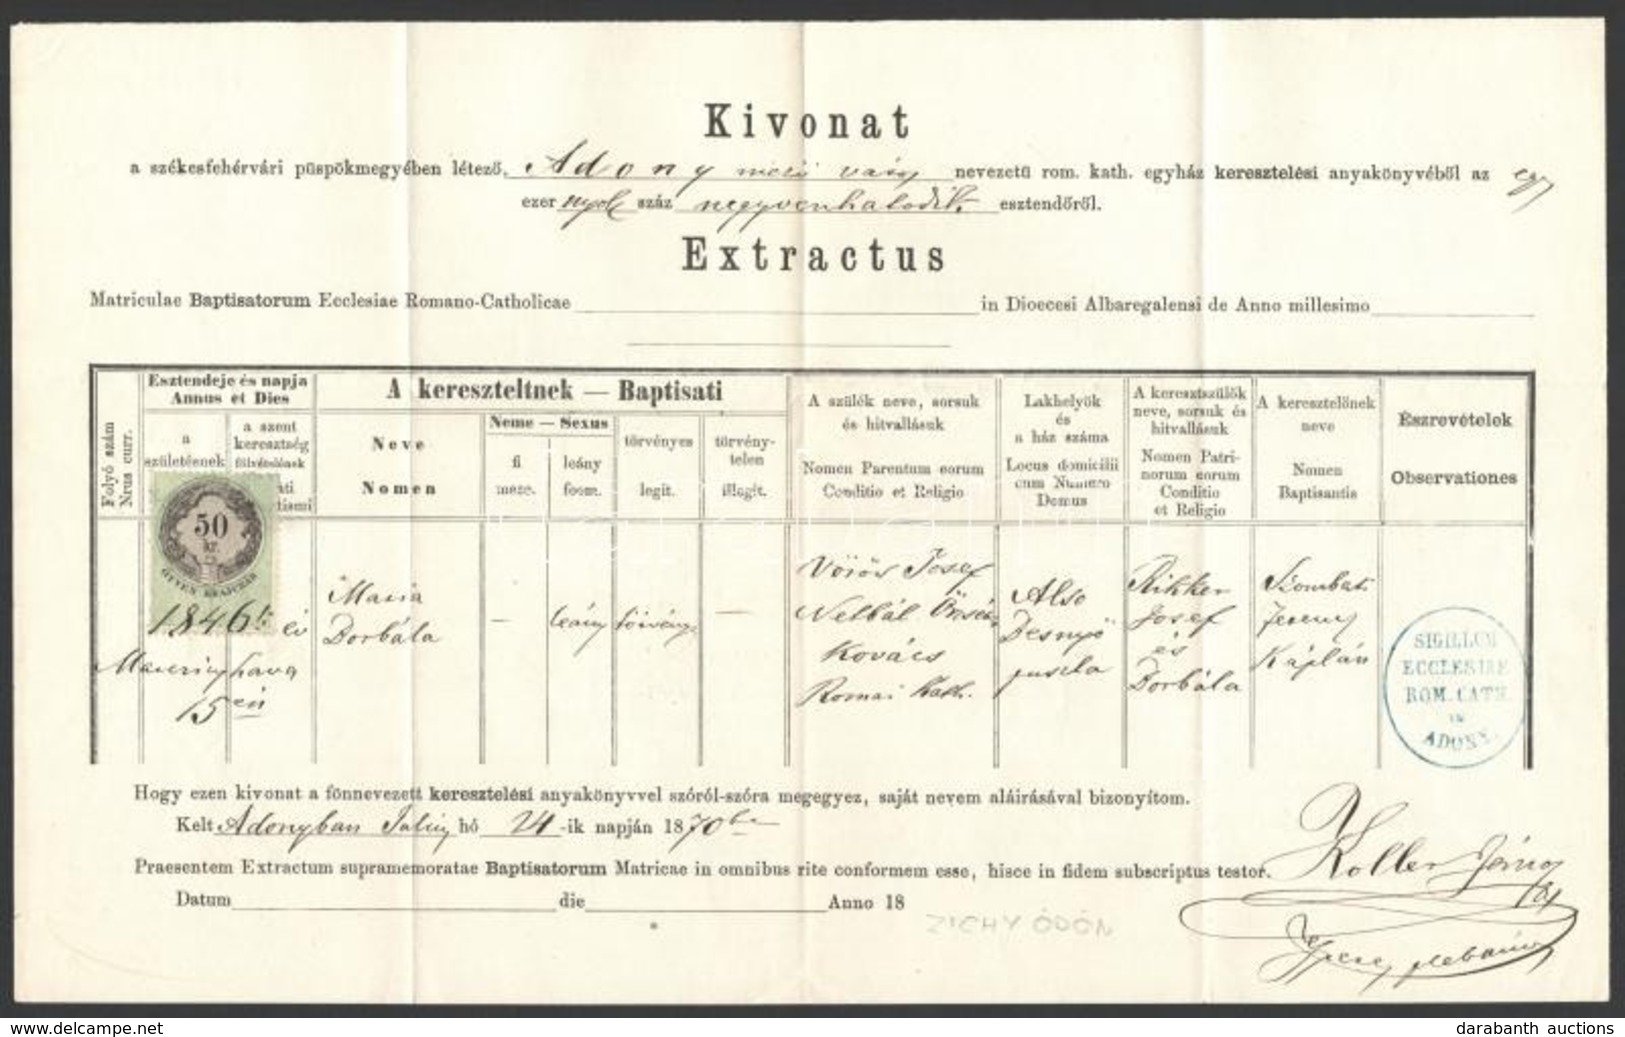 Kivonat
a székesfehérvári püspökmegyében létező, Adony mező város nevezetű rom. kath. egyház keresztelési anyakönyvéből az egy
ezer nyolc száz negyvenhatodik esztendőről.
Extractus
Matriculae Baptisatorum Ecclesiae Romano-Catholicae in Dioecesi Albaregalensi de Anno millesimo
Folyó szám
Nrus curr.
Esztendeje és napja
Annus et Dies
a
születésnek
a szent
keresztség
fölvételének
A kereszteltnek — Baptisati
Neve
Nomen
Neme — Sexus
fi
masc.
leány
foem.
törvényes
legit.
törvény-
telen
illegit.
A szülék neve, sorsuk
és hitvallásuk
Nomen Parentum eorum
Conditio et Religio
Lakhelyök
és
a ház száma
Locus domicilii
cum Numero
Domus
A keresztszülők
neve, sorsuk és
hitvallásuk
Nomen Patri-
norum eorum
Conditio
et Religio
A keresztelőnek
neve
Nomen
Baptisantis
Észrevételek
Observationes
50
kr.
ÖTVEN KRAJCZÁR
1846 ik év
hava
15 én
Maria
Borbála
—
leány
törvény
—
Vörös Josef
Kovács
Romai Kath.
Also
puszta
Rikker
Josef
és
Borbála
Szombat
Ferenc
Káplán
SIGILLUM
ECCLESIAE
ROM. CATH.
IN
ADONY.
Hogy ezen kivonat a fönnevezett keresztelési anyakönyvvel szóról-szóra megegyez, saját nevem aláirásával bizonyítom.
Kelt Adonyban Julius hó 24-ik napján 1870be
Praesentem Extractum supramemoratae Baptisatorum Matricae in omnibus rite conformem esse, hisce in fidem subscriptus testor.
Koller János
Datum die Anno 18
ZICHY ÖDÖN
plebános
www.delcampe.net
darabanth auctions